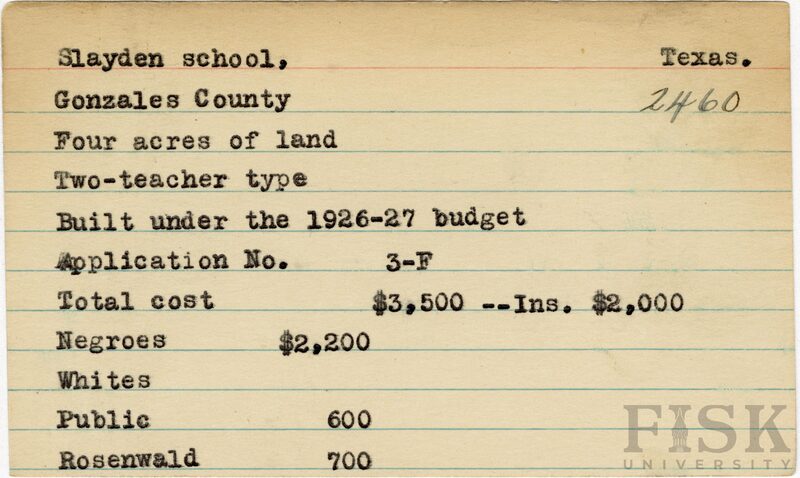 Slayden school, Texas.
Gonzales County 2460
Four acres of land
Two-teacher type
Built under the 1926-27 budget
Application No. 3-F
Total cost $3,500 --Ins. $2,000
Negroes $2,200
Whites
Public 600
Rosenwald 700
FISK
UNIVERSITY